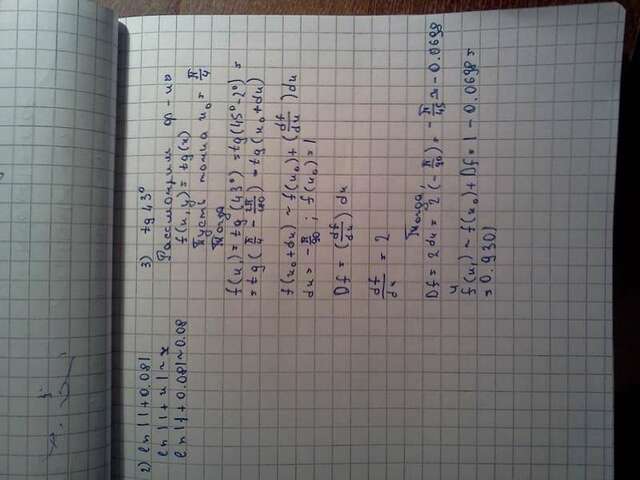 2) ln|1+0.08|
ln|1+x|~x
ln|1+0.08|~0.08
3) tg 43°
Рассмотрим ф-ию
f(x,y)=tg(x)
Пусть точка x₀=π/4
Тогда
f(x)=tg(43°)=tg(45°-2°)=
=tg(π/4-2π/180)=tg(x₀+dx)
f(x₀+dx)~f(x₀)+(df/dx)dx
dx=-π/90; f(x₀)=1
Df=(df/dx)dx
df/dx=2
Тогда,
Df=2dx=2(-π/90)=-π/45≈-0.0698
и
f(x)~f(x₀)+Df=1-0.0698=
=0.9301